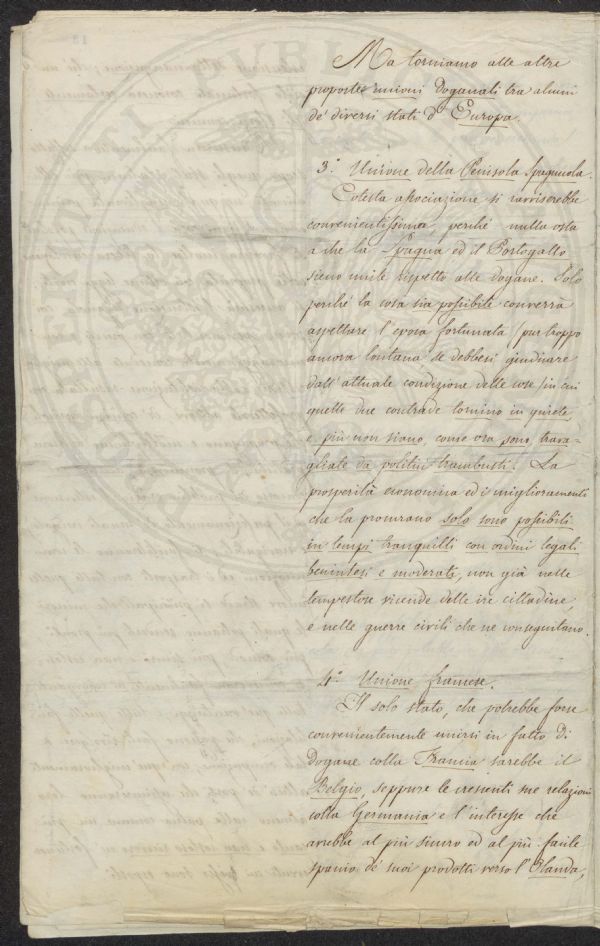 Ma torniamo alle altre
proposte unioni doganali tra alcuni
de' diversi stati d'Europa.
3.° Unione della Penisola Spagnuola.
Cotesta associazione si ravviserebbe
convenientissima, perchè nulla osta
a che la Spagna ed il Portogallo
sieno unite rispetto alle dogane. Solo
perchè la cosa sia possibile converrà
aspettare l'epoca fortunata (pur troppo
ancora lontana se debbesi giudicare
dall'attuale condizione delle cose) in cui
quelle due contrade tornino in quiete,
e più non siano, come ora sono, trava-
gliate da politici trambusti. La
prosperità economica ed i miglioramenti
che la procurano solo sono possibili
in tempi tranquilli con ordini legali
benintesi e moderati, non già nelle
tempestose vicende delle ire cittadine,
e nelle guerre civili che ne conseguitano.
4.° Unione francese.
Il solo stato, che potrebbe forse
convenientemente unirsi in fatto di
dogane colla Francia sarebbe il
Belgio, seppure le crescenti sue relazioni
colla Germania e l'interesse che
avrebbe al più sicuro ed al più facile
spaccio de' suoi prodotti verso l'Olanda,